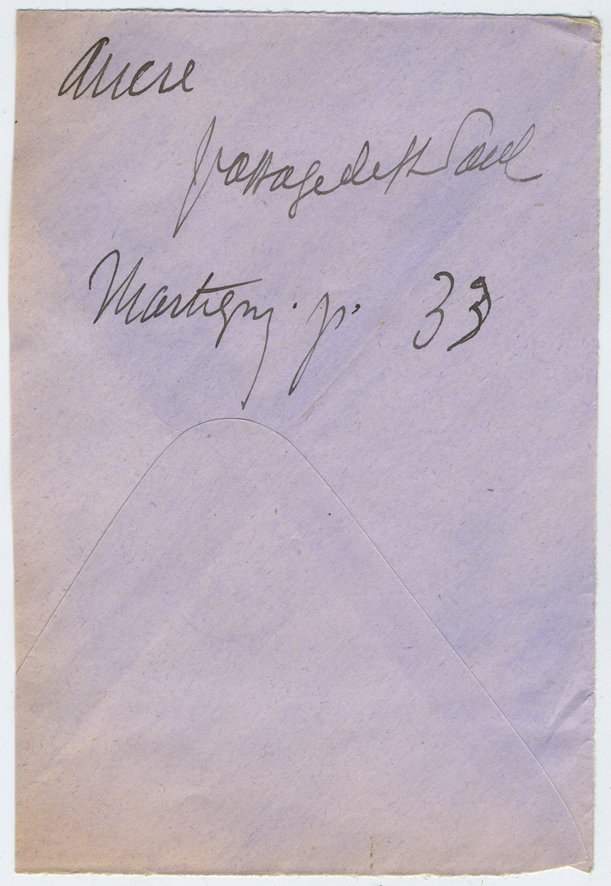 Ancre
passage de St Paul
Martigny. p. 33